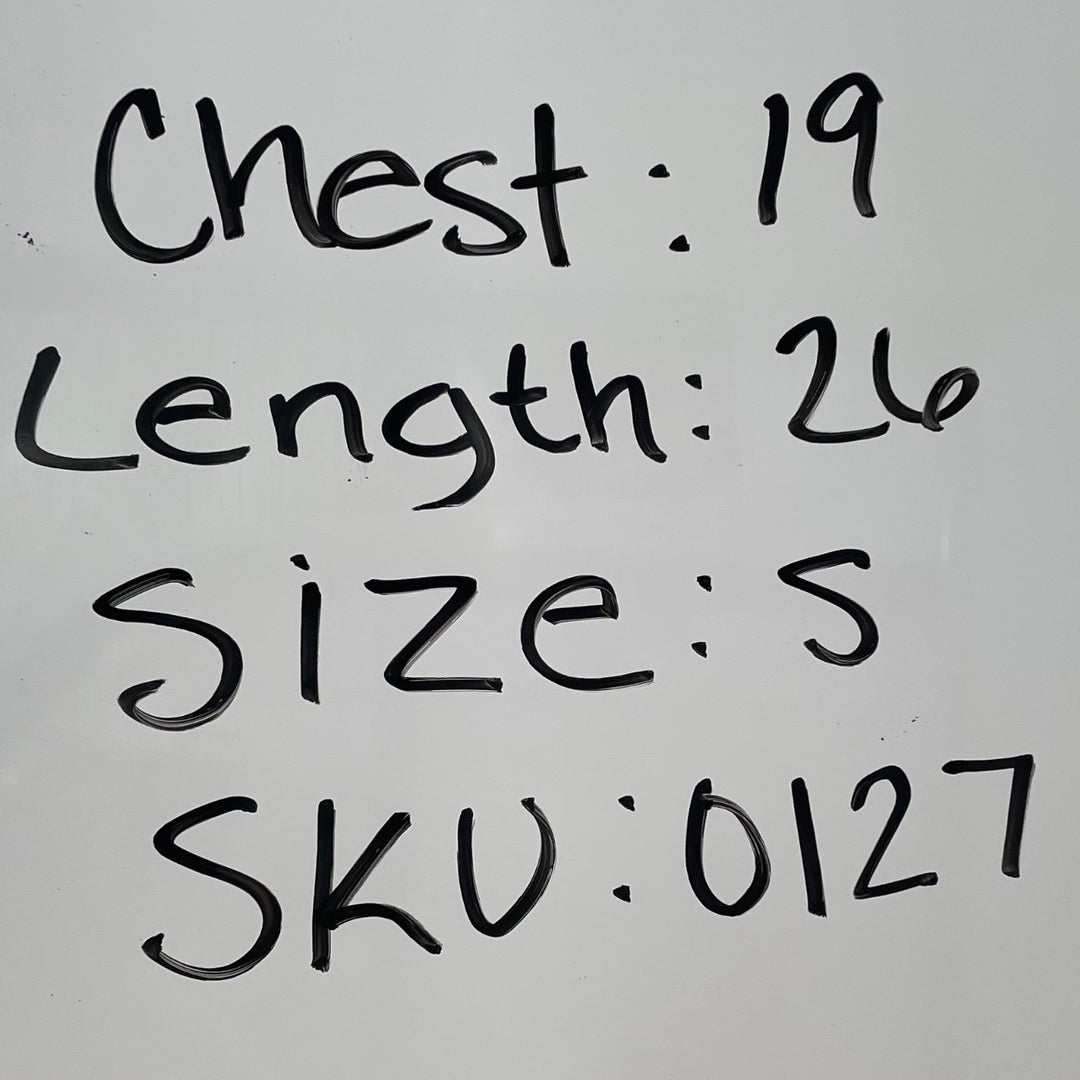 Chest: 19
Length: 26
Size: S
SKU: 0127